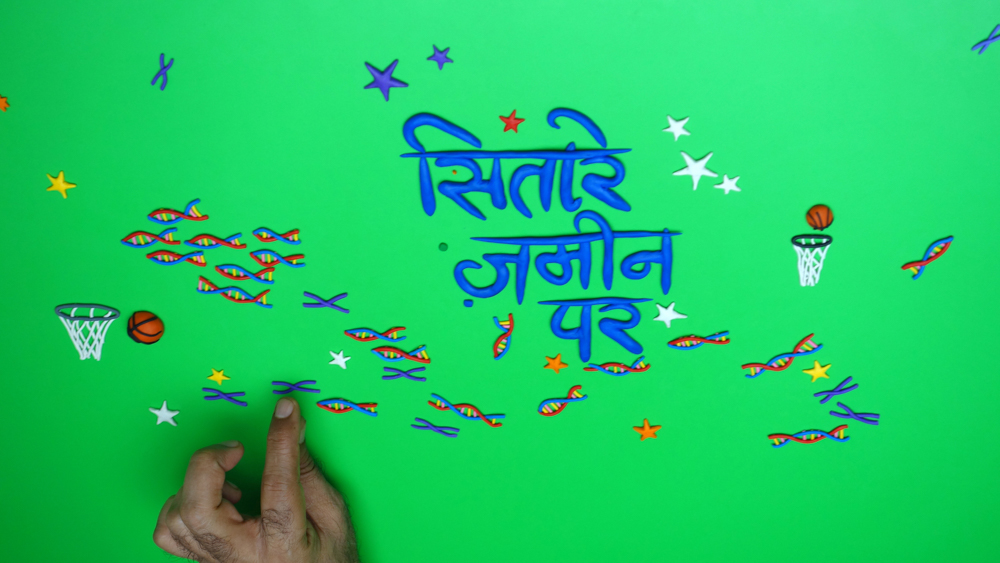 सितारे
ज़मीन
पर